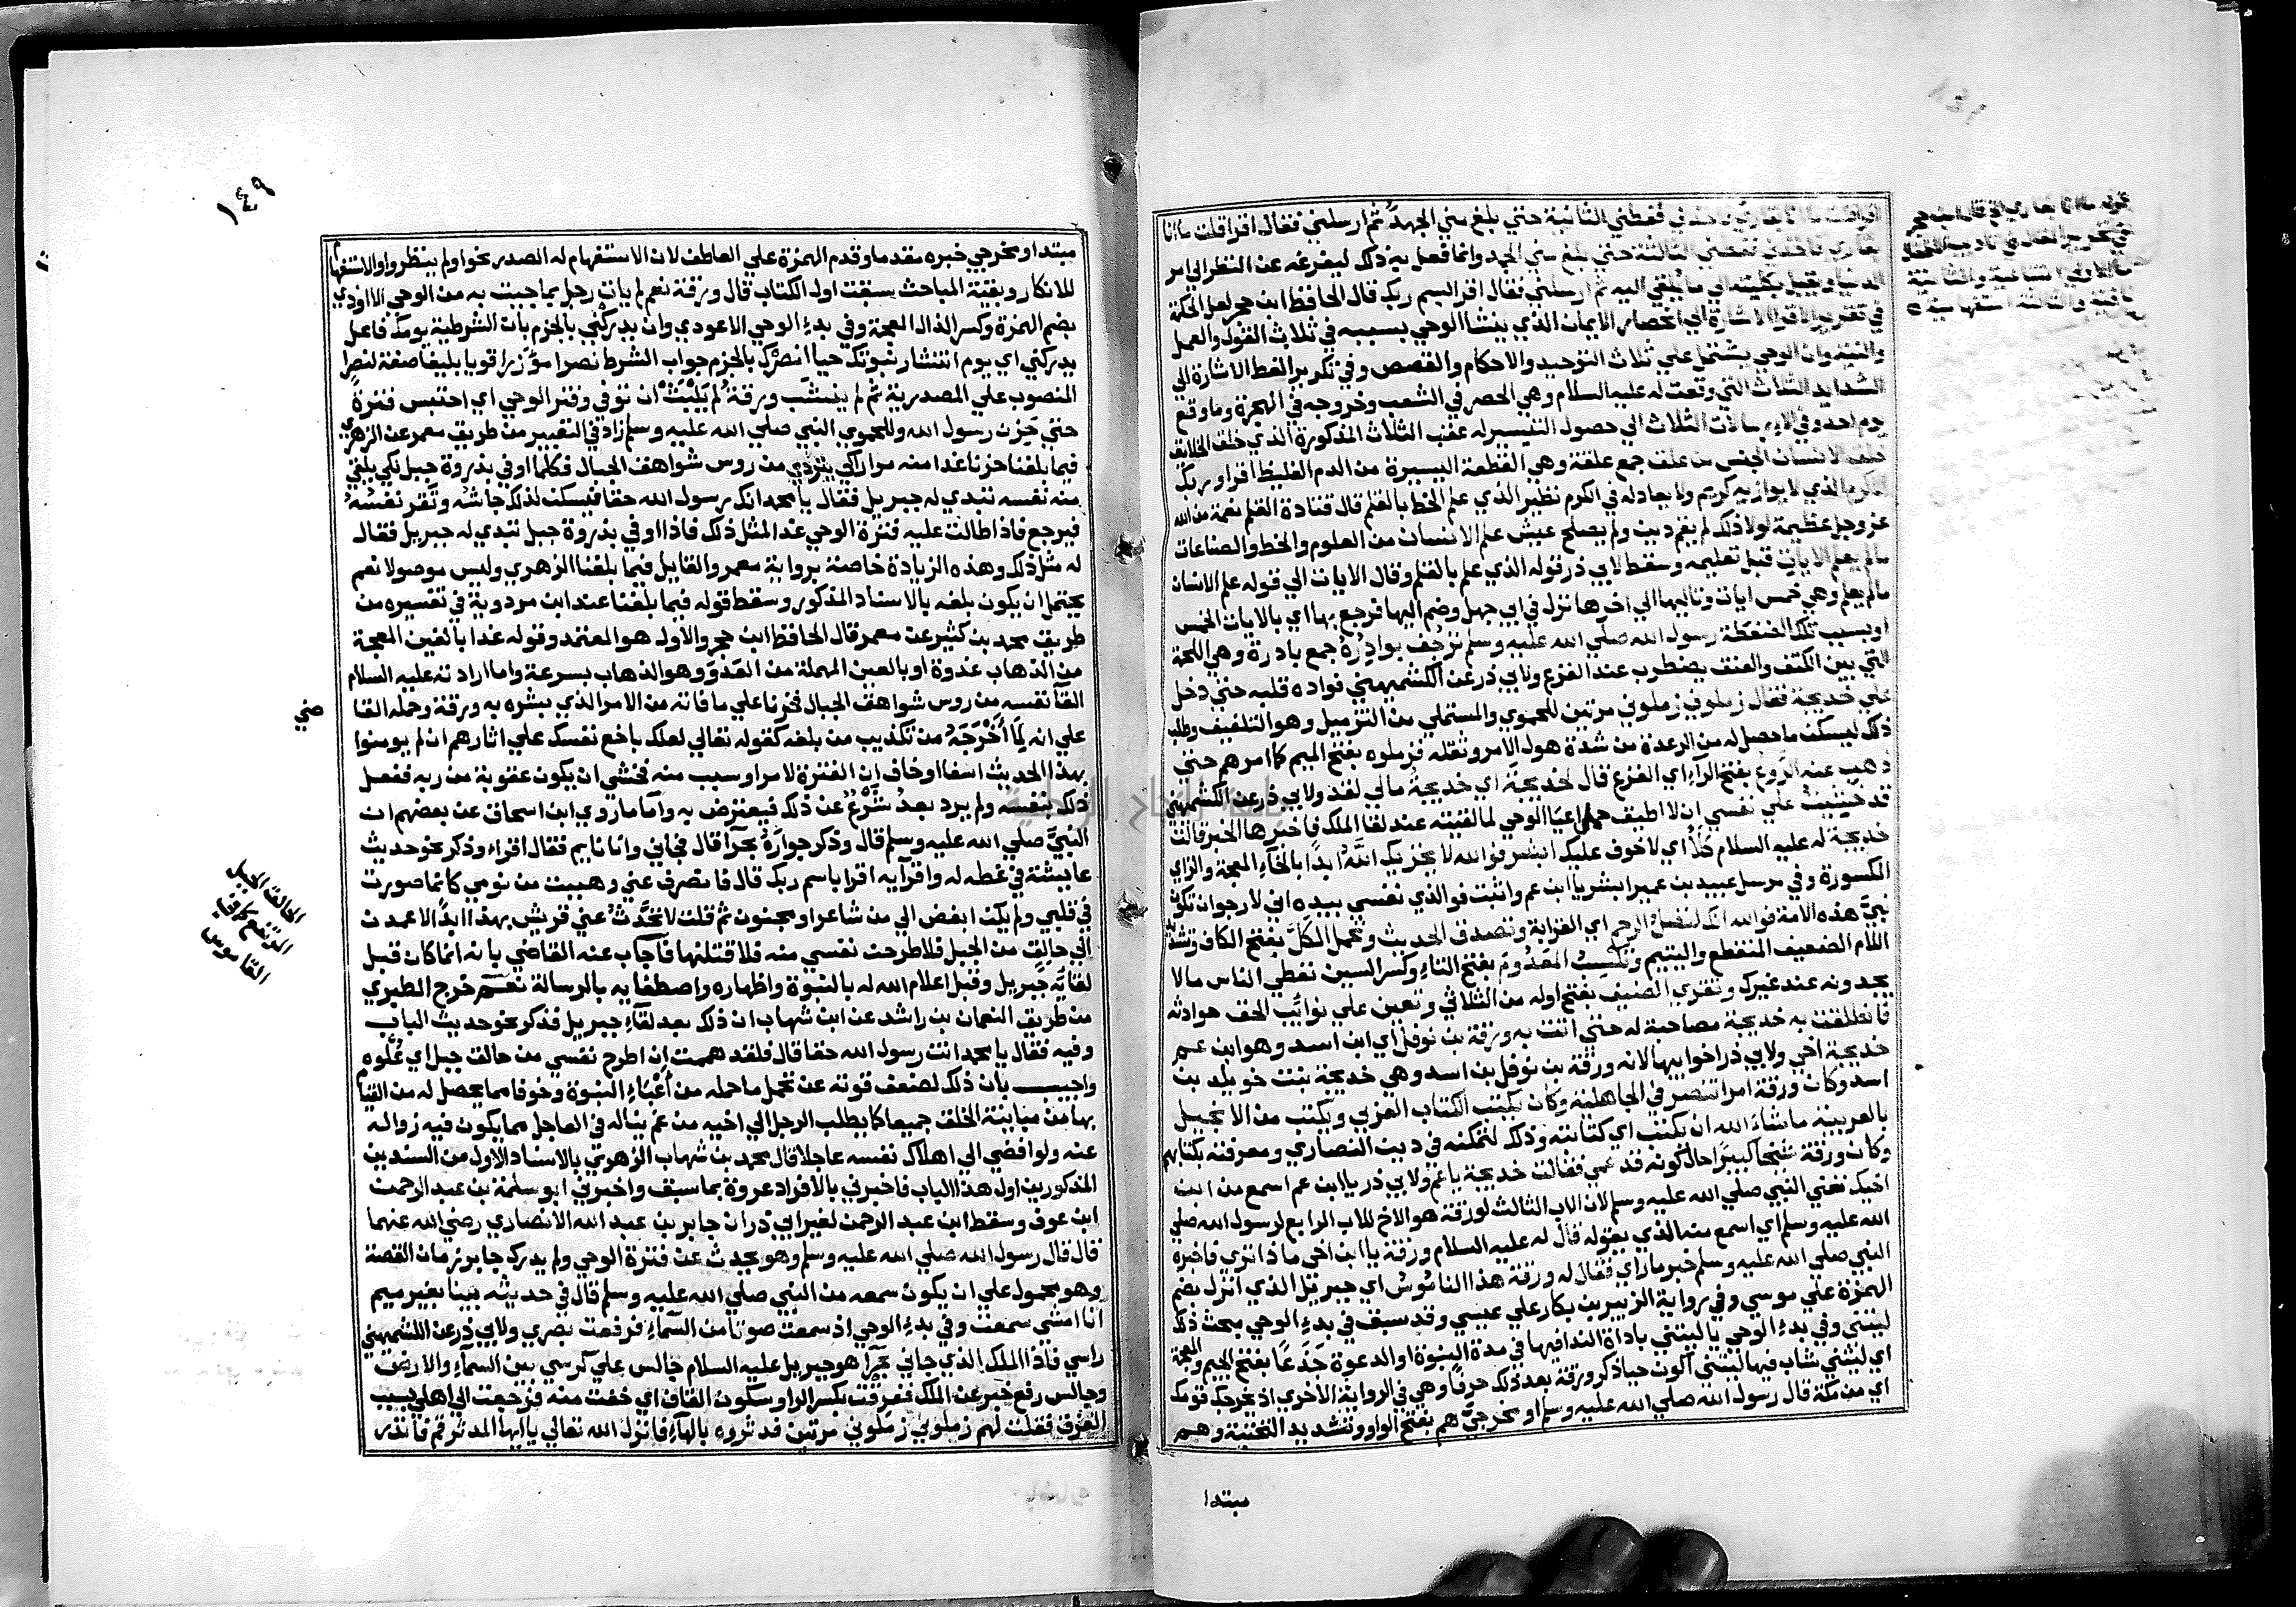 اقرا قلت ما انا بقاري فاخذني فغطني الثانية حتي بلغ مني الجهد ثم ارسلني فقال اقرا قلت ما انا
بقاري فاخذني فغطني الثالثة حتي بلغ مني الجهد وانما فعل به ذلك ليفرغه عن النظر الي امر
الدنيا ويقبل بكليته الي ما يلقي اليه ثم ارسلني فقال اقرا باسم ربك قال الحافظ ابن حجر لعل الحكمة
في تكرير الاقرا الاشارة الي انحصار الايمان الذي ينشا الوحي بسببه في ثلاث القول والعمل
والنية وان الوحي يشتمل علي ثلاث التوحيد والاحكام والقصص وفي تكرير الغط الاشارة الي
الشدايد الثلاث التي وقعت له عليه السلام وهي الحصر في الشعب وخروجه في الهجرة وما وقع
يوم احد وفي الارسالات الثلاث الي حصول التيسير له عقب الثلاث المذكورة الذي خلق الخلايق
خلق الانسان الجنس من علق جمع علقة وهي القطعة اليسيرة من الدم الغليظ اقرا وربك
الاكرم الذي لا يوازيه كريم ولا يعادله في الكرم نظير الذي علم الخط بالقلم قال قتادة القلم نعمة من الله
عز وجل عظيمة لولا ذلك لم يقم دين ولم يصلح عيش علم الانسان من العلوم والخط والصناعات
ما لم يعلم الايات قبل تعليمه وسقط لابي ذر قوله الذي علم بالقلم وقال الايات الي قوله علم الانسان
ما لم يعلم وهي خمس ايات وتاليها الي اخرها نزل في ابي جهل وضم اليها فرجع بها اي بالايات الخمس
او بسبب تلك الضغطة رسول الله صلي الله عليه وسلم ترجف بوادره جمع بادرة وهي اللحمة
التي بين الكتف والعنق يضطرب عند الفزع ولابي ذر عن الكشميهني فواده قلبه حتي دخل
علي خديجة فقال زملوني زملوني مرتين للحموي والمستملي من التزميل وهو التلفيف وطلب
ذلك ليسكن ما حصل له من الرعدة من شدة هول الامر وثقله فزملوه بفتح الميم كما امرهم حتي
ذهب عنه الروع بفتح الراء اي الفزع قال لخديجة اي خديجة مالي لقد ولابي ذر عن الكشميهني
قد خشيت علي نفسي ان لا اطيق حمل اعباء الوحي لما لقيته عند لقا الملك فاخبرها الخبر قالت
خديجة له عليه السلام كلا اي لا خوف عليك ابشر فوالله لا يخزيك الله ابدا بالخاء المعجمة والزاي
المكسورة وفي مرسل عبيد بن عمير ابشر يا ابن عم واثبت فوالذي نفسي بيده اني لارجو ان تكون
نبي هذه الامة فوالله انك لتصل الرحم اي القرابة وتصدق الحديث وتحمل الكل بفتح الكاف وتشديد
اللام الضعيف المنقطع واليتيم وتكسب المعدوم بفتح التاء وكسر السين تعطي الناس مالا
يجدونه عند غيرك وتقري الضيف بفتح اوله من الثلاثي وتعين علي نوايب الحق حوادثه
فانطلقت به خديجة مصاحبة له حتي اتت به ورقة بن نوفل اي ابن اسد وهو ابن عم
خديجة اخي ولابي ذر اخوا ابيها لانه ورقة بن نوفل بن اسد وهي خديجة بنت خويلد بن
اسد وكان ورقة امرا تنصر في الجاهلية وكان يكتب الكتاب العربي ويكتب من الانجيل
بالعربية ما شاء الله ان يكتب اي كتابته وذلك لتمكنه في دين النصاري ومعرفته بكتابهم
وكان ورقة شيخا كبيرا حال كونه قد عمي فقالت خديجة يا عم ولابي ذر يا ابن عم اسمع من ابن
اخيك تعني النبي صلي الله عليه وسلم لان الاب الثالث لورقة هو الاخ للاب الرابع لرسول الله صلي
الله عليه وسلم اي اسمع منه الذي يقوله قال له عليه السلام ورقة يا ابن اخي ماذا تري فاخبره
النبي صلي الله عليه وسلم خبر ما راي فقال له ورقة هذا الناموس اي جبريل الذي انزل بضم
الهمزة علي موسي وفي رواية الزبير بن بكار علي عيسي وقد سبق في بدء الوحي مبحث ذلك
ليتني وفي بدء الوحي يا ليتني باداة الندا فيها في مدة النبوة او الدعوة جذعا بفتح الجيم والمعجمة
اي ليتني شاب فيها ليتني اكون حيا ذكر ورقة بعد ذلك حرفا وهي في الرواية الاخري اذ يخرجك قومك
اي من مكة قال رسول الله صلي الله عليه وسلم او مخرجي هم بفتح الواو وتشديد التحتية وهم
مبتدا
١٤٩
مبتدا ومخرجي خبره مقدما وقدم الهمزة علي العاطف لان الاستفهام له الصدر نحو اولم ينظروا والاستفهام
للانكار وبقية المباحث سبقت اول الكتاب قال ورقة نعم لم يات رجل بما جيت به من الوحي الا اوذي
بضم الهمزة وكسر الذال المعجمة وفي بدء الوحي الا عودي وان يدركني بالجزم بان الشرطية يومك فاعل
يدركني اي يوم انتشار نبوتك حيا انصرك بالجزم جواب الشرط نصرا موزرا قويا بليغا صفة لنصرا
المنصوب علي المصدرية ثم لم ينشب ورقة لم يلبث ان توفي وفتر الوحي اي احتبس فترة
حتي حزن رسول الله وللحموي النبي صلي الله عليه وسلم زاد في التعبير من طريق معمر عن الزهري
فيما بلغنا حزنا غدا منه مرارا كي يتردي من روس شواهق الجبال فكلما اوفي بذروة جبل لكي يلقي
منه نفسه تبدي له جبريل فقال يا محمد انك رسول الله حقا فيسكن لذلك جاشه وتقر نفسه
فيرجع فاذا طالت عليه فترة الوحي غدا لمثل ذلك فاذا اوفي بذروة جبل تبدي له جبريل فقال
له مثل ذلك وهذه الزيادة خاصة برواية معمر والقايل فيما بلغنا الزهري وليس موصولا نعم
يحتمل ان يكون بلغه بالاسناد المذكور وسقط قوله فيما بلغنا عند ابن مردوية في تفسيره من
طريق محمد بن كثير عن معمر قال الحافظ ابن حجر والاول هو المعتمد وقوله غدا بالغين المعجمة
من الذهاب غدوة او بالعين المهملة من العدو وهو الذهاب بسرعة واما ارادته عليه السلام
القا نفسه من روس شواهق الجبال فحزنا علي ما فاته من الامر الذي بشره به ورقة وحمله القا
ضي
علي انه لما اخرجه من تكذيب من بلغه كقوله تعالي لعلك باخع نفسك علي اثارهم ان لم يومنوا
بهذا الحديث اسفا او خاف ان الفترة لامر او سبب منه فخشي ان يكون عقوبة من ربه ففعل
ذلك بنفسه ولم يرد بعد شرع عن ذلك فيعترض به واما ما روي ابن اسحاق عن بعضهم ان
النبي صلي الله عليه وسلم قال وذكر جواره بحرآ قال فجاني وانا نايم فقال اقراء وذكر نحو حديث
عايشة في غطه له واقرآيه اقرا باسم ربك قال فانصرف عني وهببت من نومي كانما صورت
في قلبي ولم يكن ابغض الي من شاعر او مجنون ثم قلت لا تحدث عني قريش بهذا ابدا لاعمدن
الي حالق من الجبل فلاطرحن نفسي منه فلاقتلنها فاجاب عنه القاضي بانه انما كان قبل
الحالق الجبل
المرتفع كما في
القاموس
لقايه جبريل وقبل اعلام الله له بالنبوة واظهاره واصطفايه بالرسالة نعم خرج الطبري
من طريق النعمان بن راشد عن ابن شهاب ان ذلك بعد لقاء جبريل فذكر نحو حديث الباب
وفيه فقال يا محمد انت رسول الله حقا قال فلقد هممت ان اطرح نفسي من حالق جبل اي علوه
واجيب بان ذلك لضعف قوته عن تحمل ما حمله من اعباء النبوة وخوفا مما يحصل له من القيام
بها من مباينة الخلق جميعا كما يطلب الرجل الي اخيه من غم يناله في العاجل مما يكون فيه زواله
عنه ولو افضي الي اهلاك نفسه عاجلا قال محمد بن شهاب الزهري بالاسناد الاول من السندين
المذكورين اول هذا الباب فاخبرني بالافراد عروة بما سبق واخبرني ابو سلمة بن عبد الرحمن
ابن عوف وسقط ابن عبد الرحمن لغير ابي ذر ان جابر بن عبد الله الانصاري رضي الله عنهما
قال قال رسول الله صلي الله عليه وسلم وهو يحدث عن فترة الوحي ولم يدرك جابر زمان القصة
وهو محمول علي ان يكون سمعه من النبي صلي الله عليه وسلم قال في حديثه بينا بغير ميم
انا امشي سمعت وفي بدء الوحي اذ سمعت صوتا من السمآء فرفعت بصري ولابي ذر عن الكشميهني
راسي فاذا الملك الذي جاني بحرآ هو جبريل عليه السلام جالس علي كرسي بين السمآء والارض
وجالس رفع خبر عن الملك ففرقت بكسر الراء وسكون القاف اي خفت منه فرجعت الي اهلي بسبب
الفرق فقلت لهم زملوني زملوني مرتين فدثروه بالهاء فانزل الله تعالي يا ايها المدثر قم فانذر